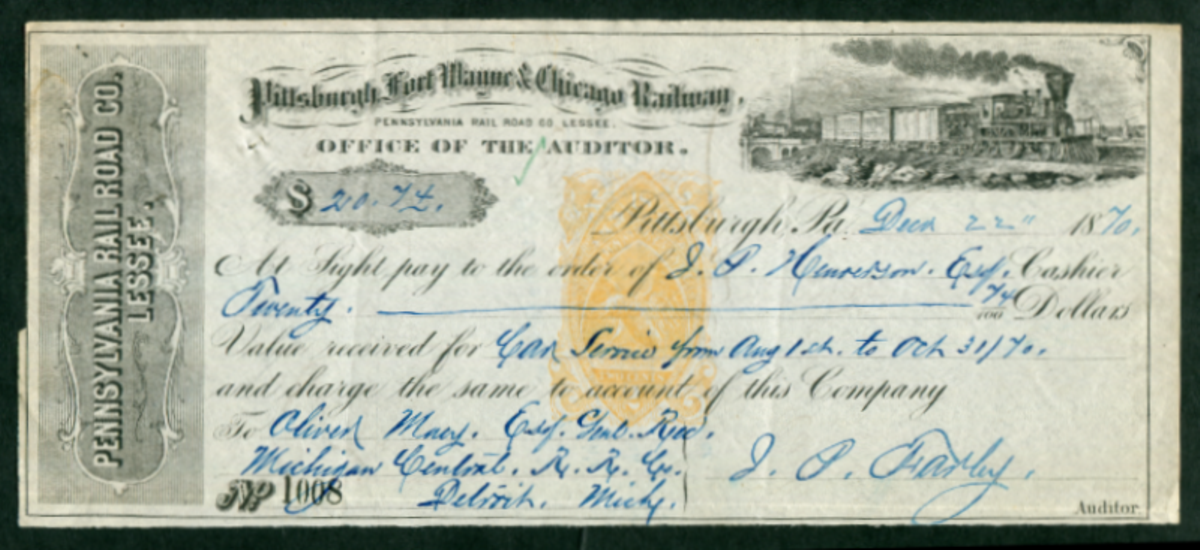 PENNSYLVANIA RAIL ROAD CO.
LESSEE.
Pittsburgh, Fort Wayne & Chicago Railway,
PENNSYLVANIA RAIL ROAD CO. LESSEE.
OFFICE OF THE AUDITOR.
$ 20.74.
Pittsburgh, Pa. Decr 22" 1870.
At Sight pay to the order of J. P. Henderson. Esq. Cashier
Twenty. 74/100 Dollars
Value received for Car Service from Aug 1st. to Oct 31/70.
and charge the same to account of this Company
To Oliver Macy. Esq. Genl. Rec.
Michigan Central. R. R. Co.
No 1008 Detroit. Mich.
J. P. Farley.
Auditor.